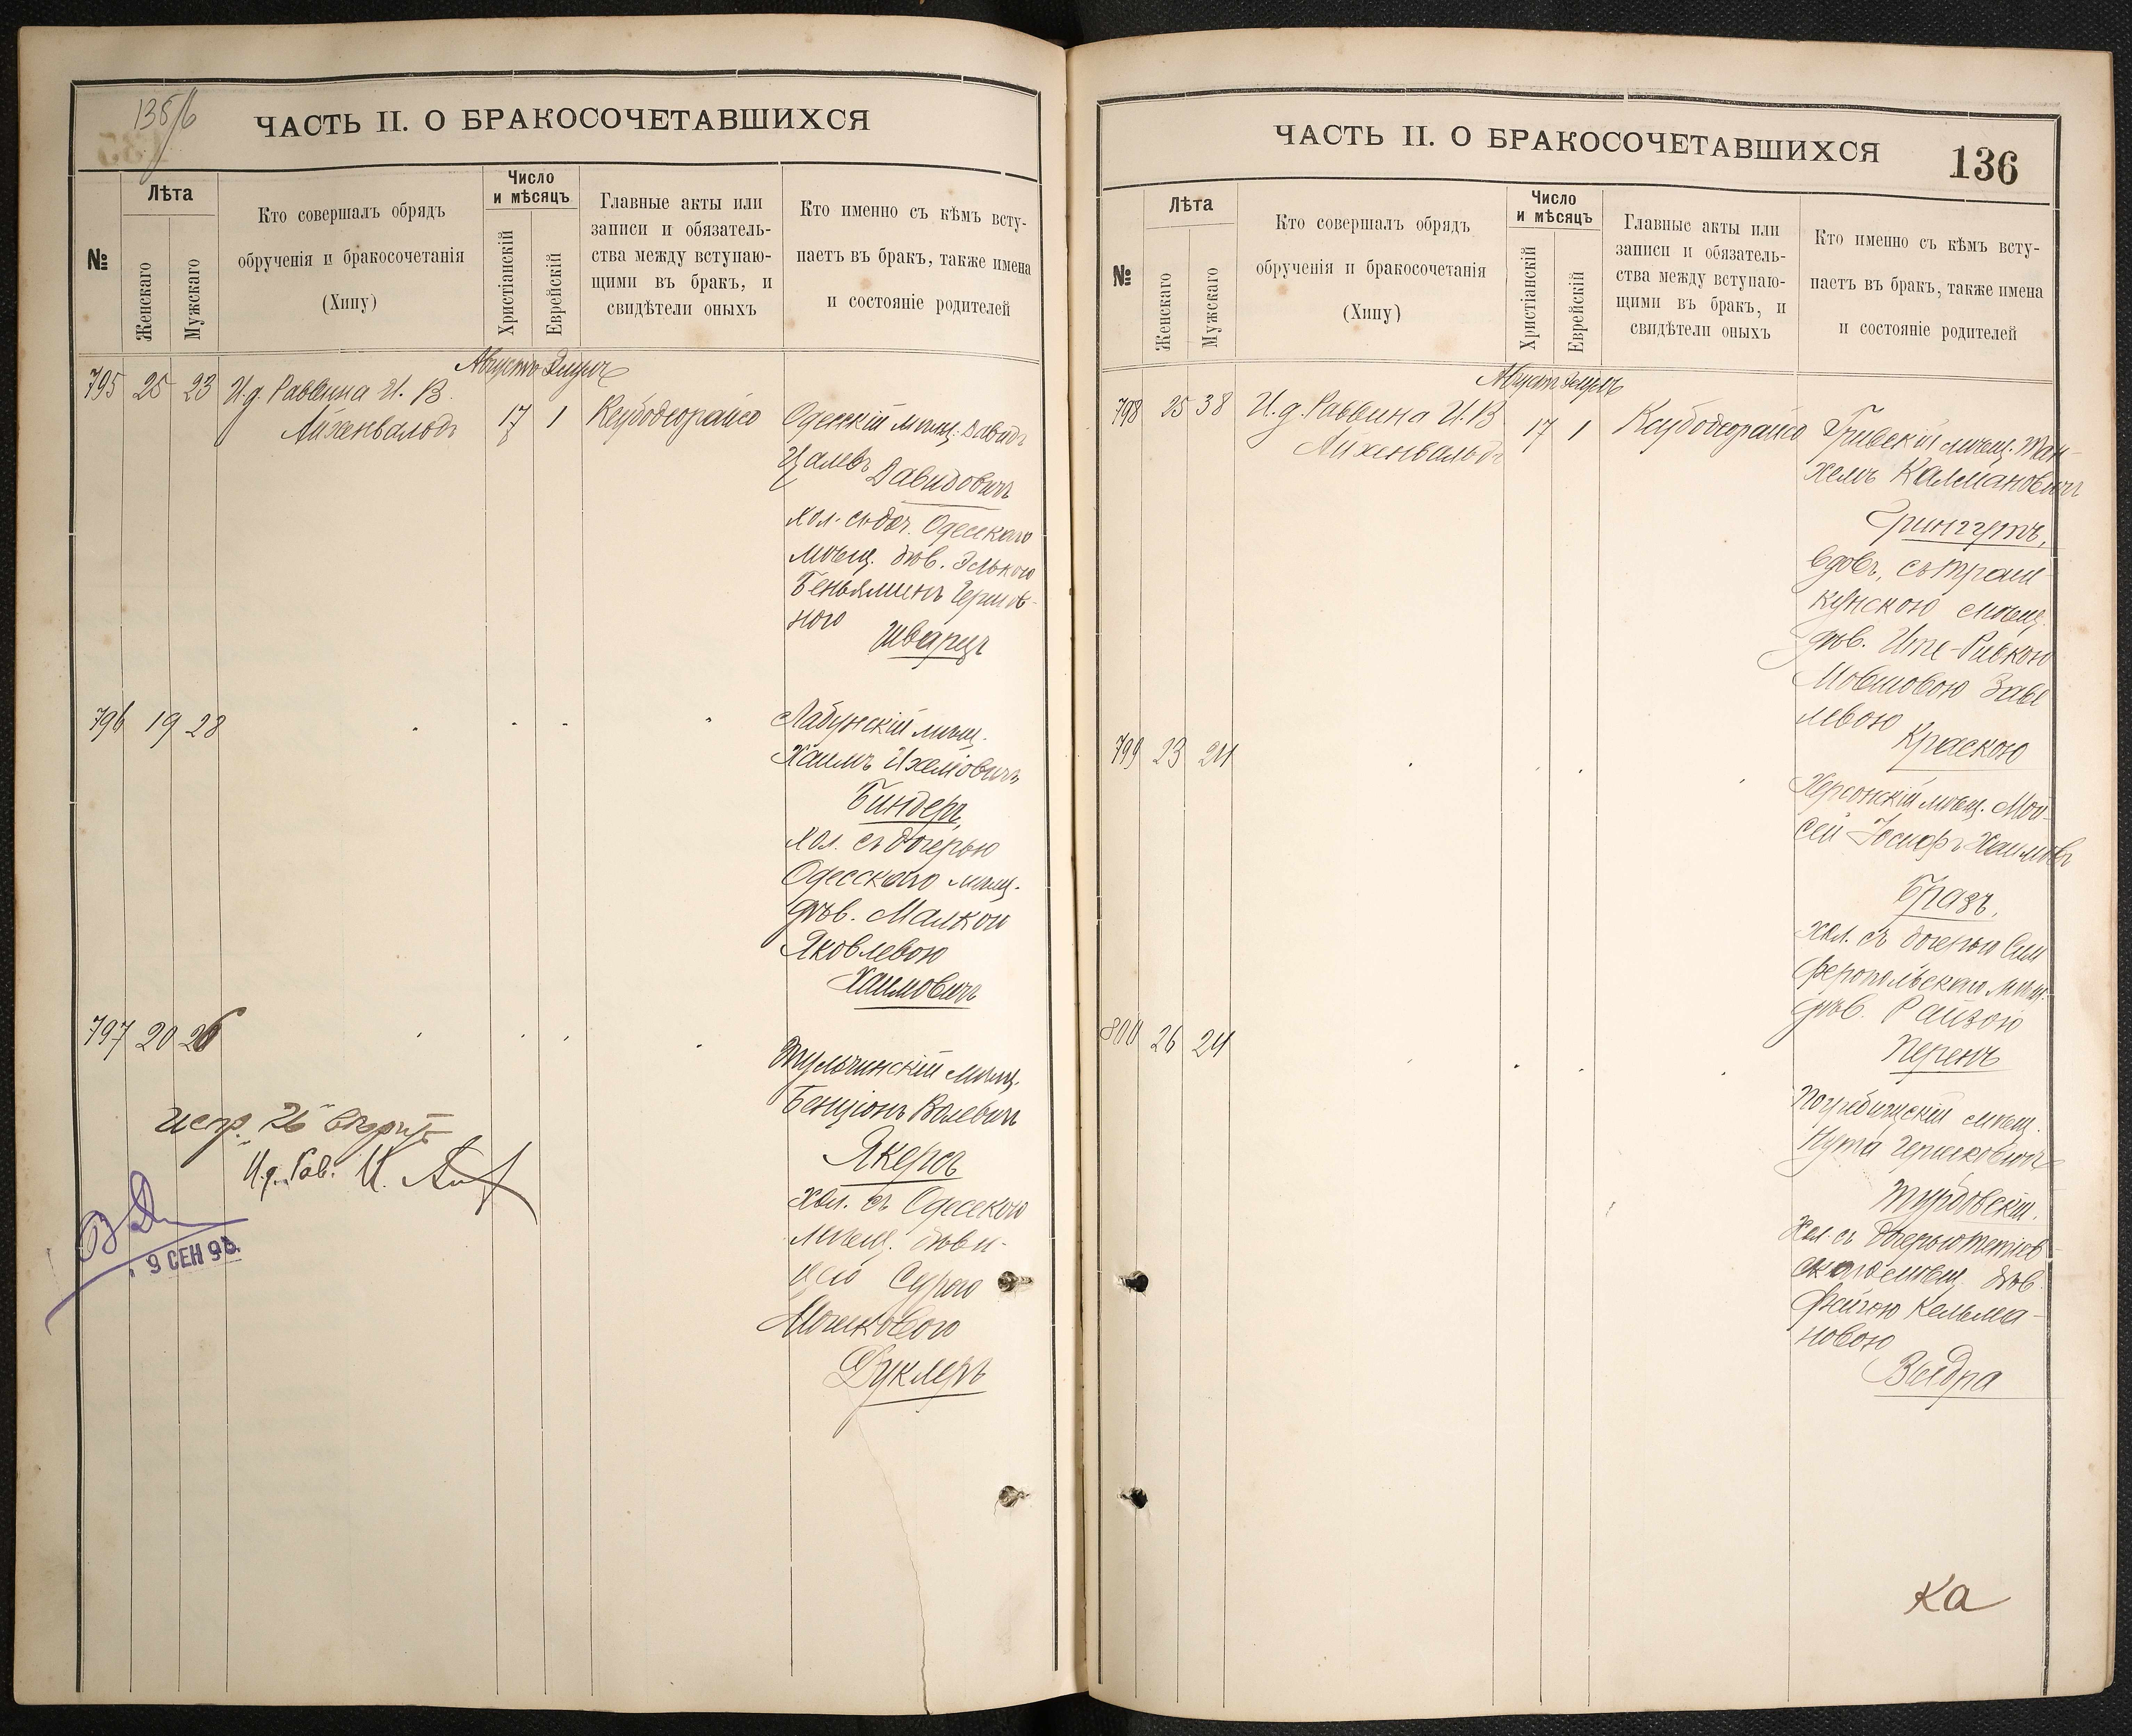 135/б
ЧАСТЬ II. О БРАКОСОЧЕТАВШИХСЯ
№
Лѣта
Женскаго
Мужскаго
Кто совершалъ обрядъ
обрученія и бракосочетанія
(Хипу)
Число
и мѣсяцъ
Христіанскій
Еврейскій
Главные акты или
записи и обязатель-
ства между вступаю-
щими въ бракъ, и
свидѣтели оныхъ
Кто именно съ кѣмъ всту-
паетъ въ бракъ, также имена
и состояніе родителей
Августъ Элулъ
795 25 23 И.д. Раввина И. В.
Айхенвальдъ
17 1
Одесскій мѣщ. Давидъ
Давидовичъ
хол. съ доч. Одесскаго
мѣщ. дѣв. Элькою
Беньяминъ Гершов-
ною
Шварцъ
796 19 28
Лабунскій мѣщ.
Хаимъ Ихелiовичъ
Биндеръ,
хол. съ дочерью
Одесскаго мѣщ.
дѣв. Малкою
Яковлевою
Хаимовичъ
797 20 26
Тульчинскій мѣщ.
Бенціонъ Волевичъ
Якеръ
хол. съ Одесскою
мѣщ. дѣви-
цею Сурою
Мошковою
Дуклеръ
испр. "26" вѣрно
И.д. Рав. И. Ай
9 СЕН 9
ЧАСТЬ II. О БРАКОСОЧЕТАВШИХСЯ
136
№
Лѣта
Женскаго
Мужскаго
Кто совершалъ обрядъ
обрученія и бракосочетанія
(Хипу)
Число
и мѣсяцъ
Христіанскій
Еврейскій
Главные акты или
записи и обязатель-
ства между вступаю-
щими въ бракъ, и
свидѣтели оныхъ
Кто именно съ кѣмъ всту-
паетъ въ бракъ, также имена
и состояніе родителей
Августъ Элулъ
798 25 38 И.д. Раввина И. В
Айхенвальдъ
17 1
Гривскій мѣщ. Тан-
хелъ Калмановичъ
Грингутъ,
вдов., съ Траш-
кунскою мѣщ.
дѣв. Ите-Ривкою
Мовшовою Заве
левою
Краскою
799 23 24
Херсонскій мѣщ. Мой-
сей Іосифъ Хаимовъ
Бразъ,
хол. съ дочерью Сим
феропольскаго мѣщ.
дѣв. Райзою
Перенъ
800 26 24
Погребищскій мѣщ.
Нута Гершковичъ
Турбовскій.
Хол. съ дочерью Тетіев-
скаго мѣщ. дѣв.
Фейгою Кельма-
новою
Выдра
ка